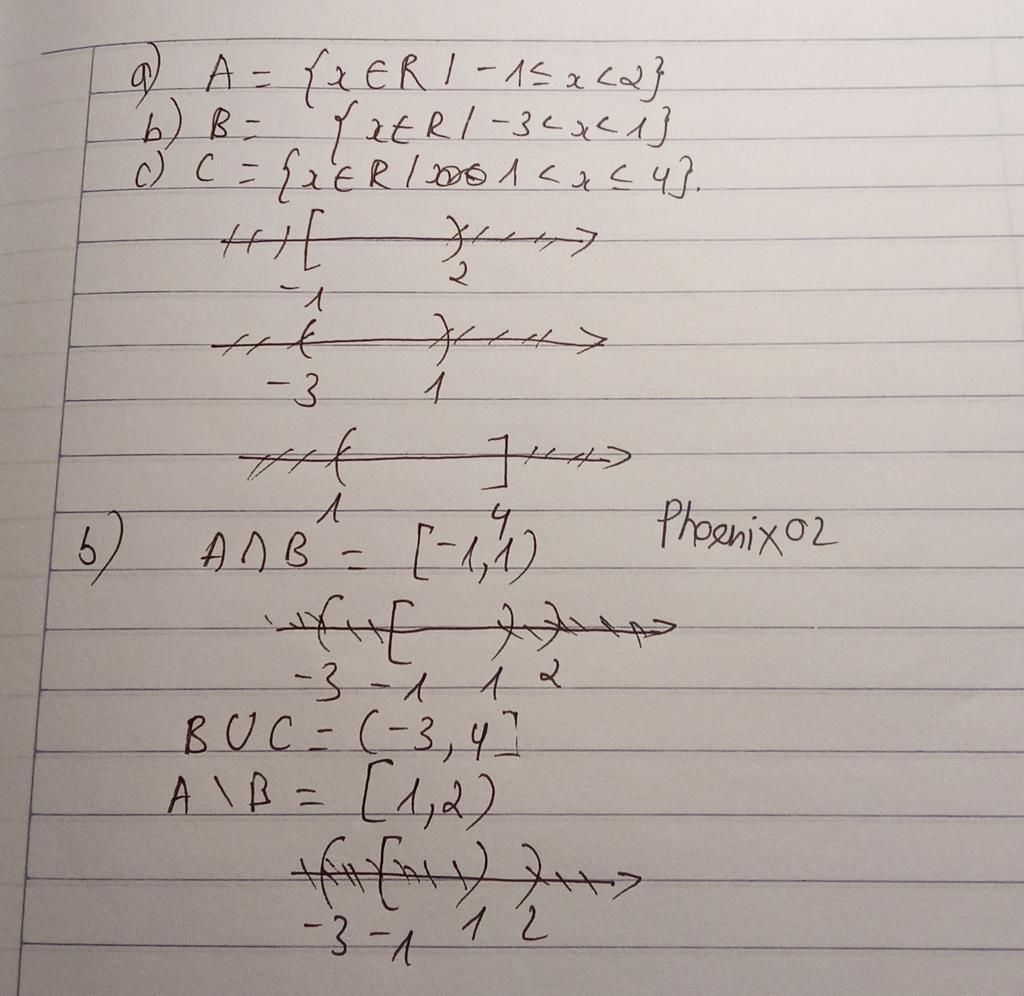 a) A = {x ∈ R / -1 ≤ x < 2}
b) B = {x ∈ R / -3 < x < 1}
c) C = {x ∈ R / 1 < x ≤ 4}.
[ )
-1 2
( )
-3 1
( ]
1 4
b) A ∩ B = [-1, 1) Phoenix02
( [ ) )
-3 -1 1 2
B ∪ C = (-3, 4]
A \ B = [1, 2)
( [ ) )
-3 -1 1 2